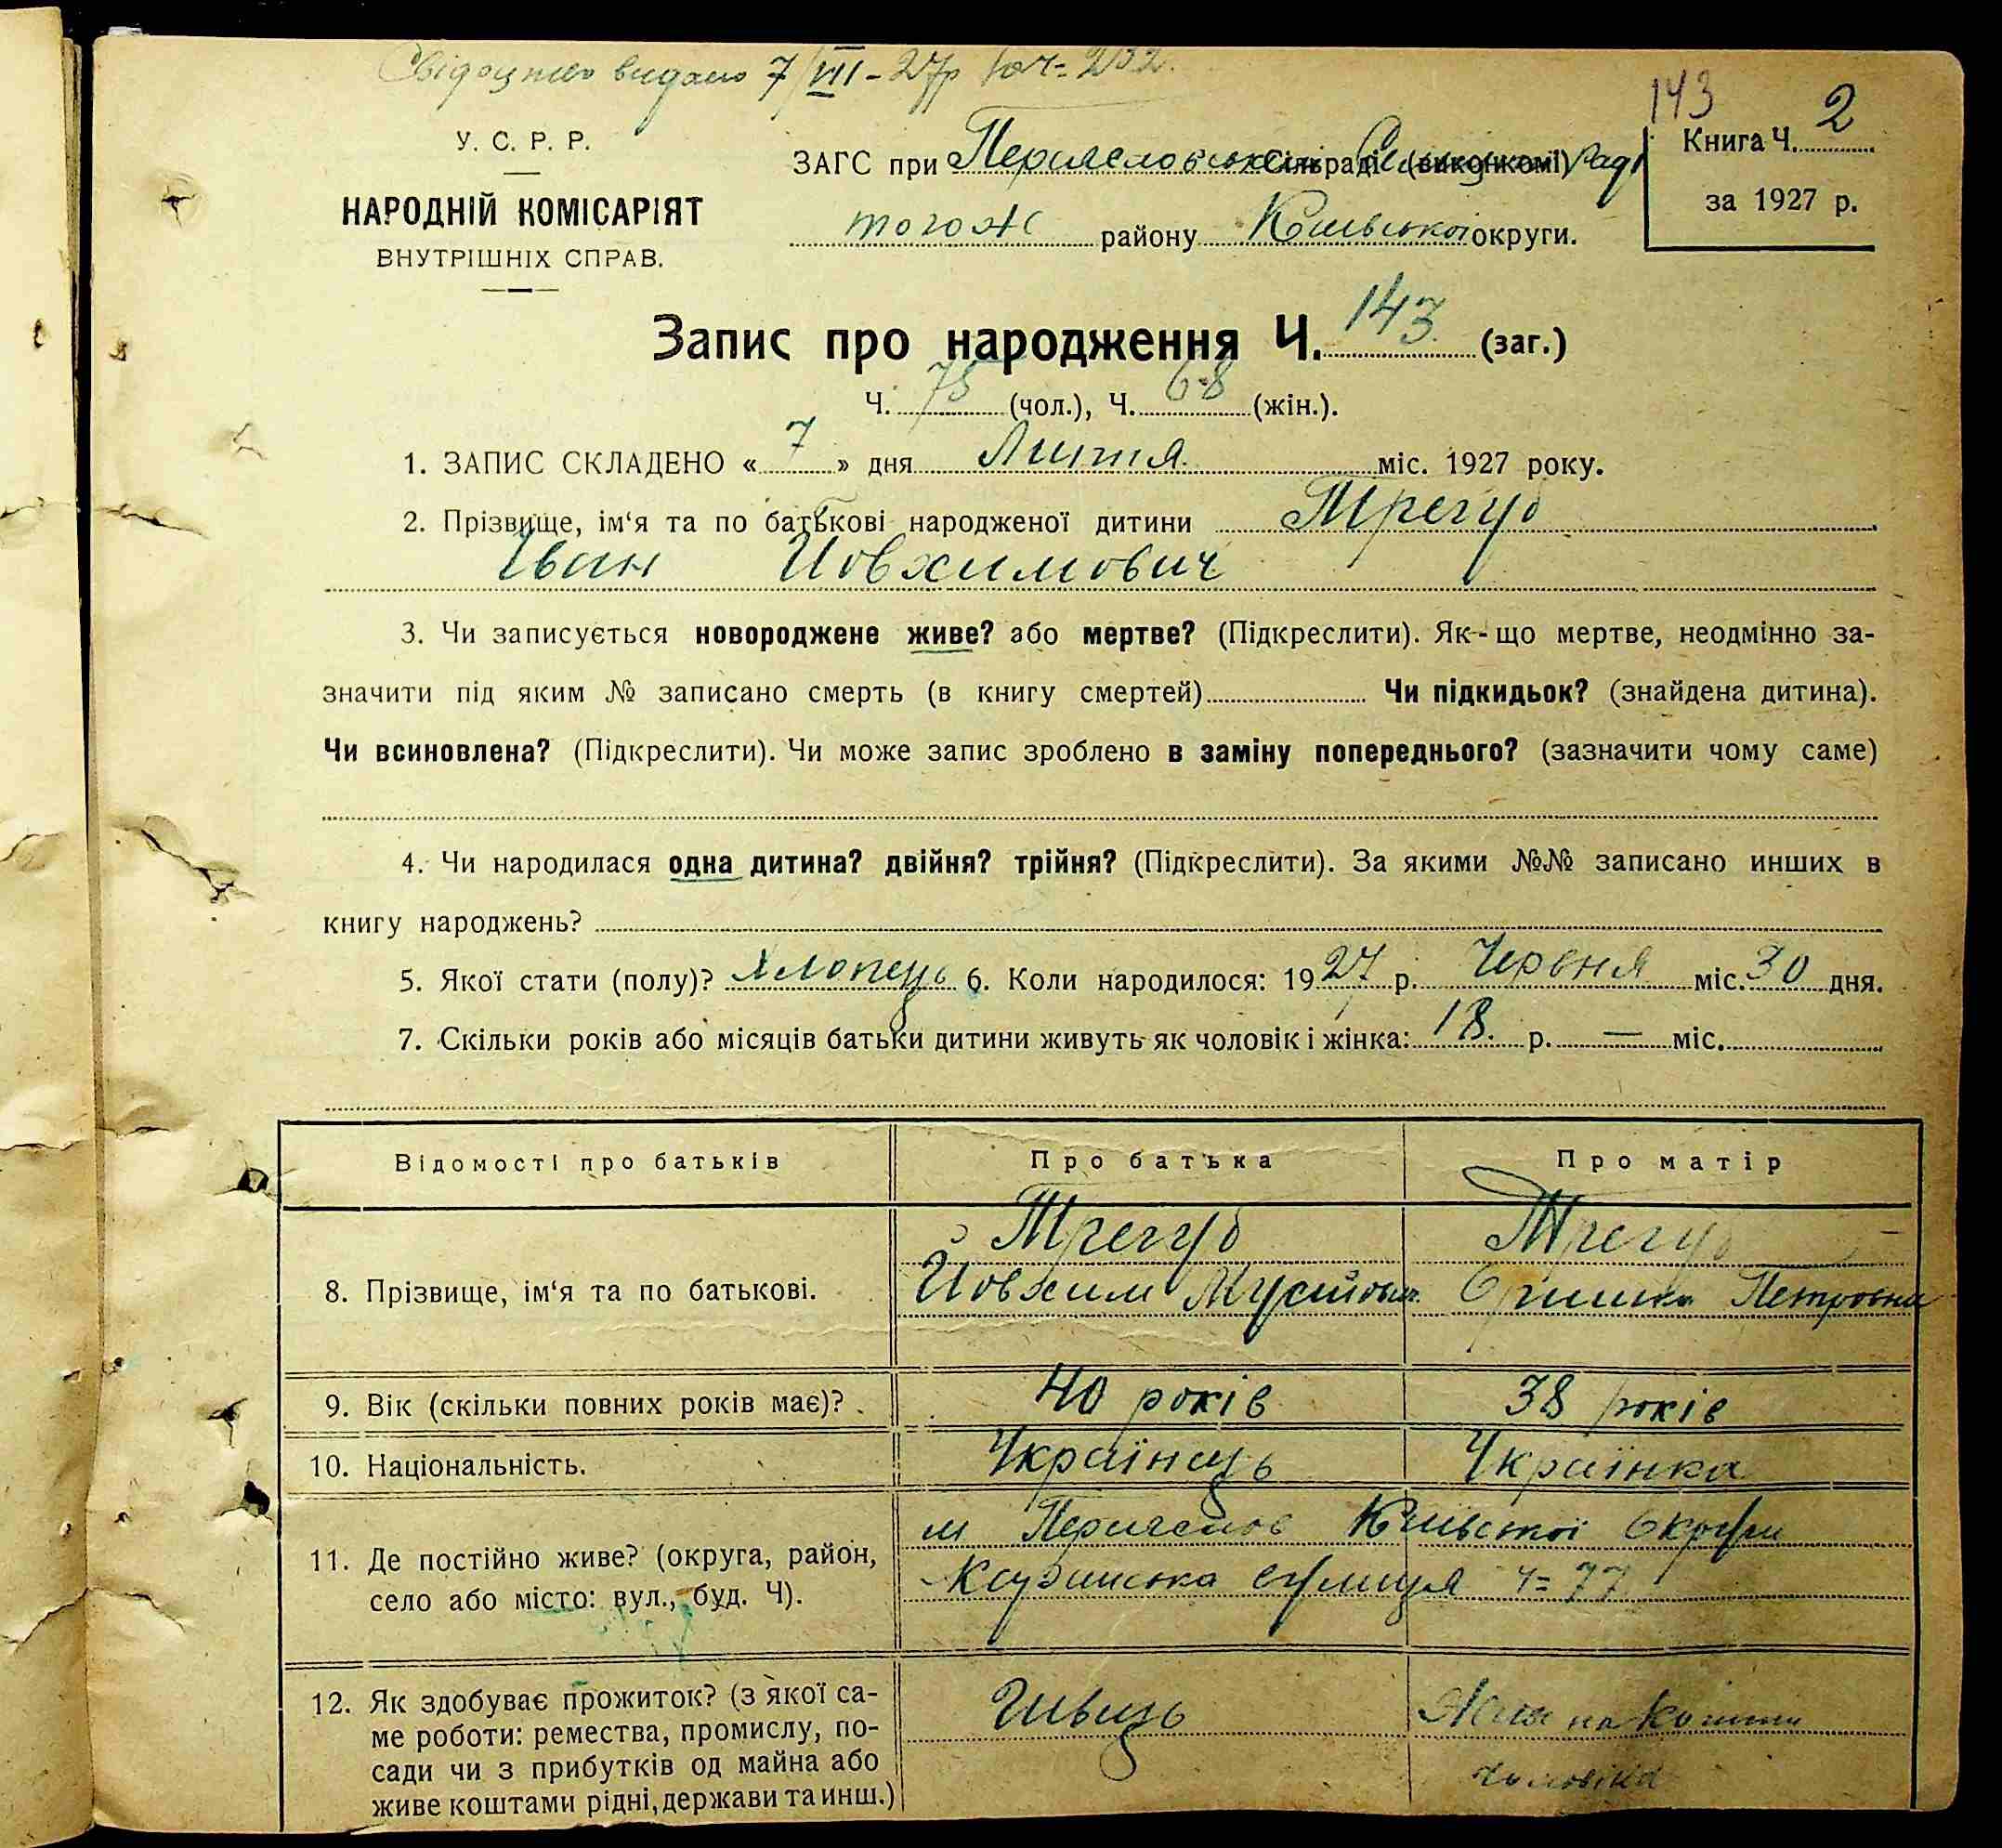 Свідоцтво видано 7/VII-27р
143
У. С. Р. Р.
НАРОДНІЙ КОМІСАРІЯТ
ВНУТРІШНІХ СПРАВ.
ЗАГС при Переяславській Сільраді (виконкомі) раді
тогож району Київської округи.
Книга Ч. 2
за 1927 р.
Запис про народження Ч. 143 (заг.)
Ч. 75 (чол.), Ч. 68 (жін.).
1. ЗАПИС СКЛАДЕНО « 7 » дня Липня міс. 1927 року.
2. Прізвище, ім‘я та по батькові народженої дитини Трегуб
Іван Йовхимович
3. Чи записується новороджене живе? або мертве? (Підкреслити). Як-що мертве, неодмінно за-
значити під яким № записано смерть (в книгу смертей) Чи підкидьок? (знайдена дитина).
Чи всиновлена? (Підкреслити). Чи може запис зроблено в заміну попереднього? (зазначити чому саме)
4. Чи народилася одна дитина? двійня? трійня? (Підкреслити). За якими №№ записано инших в
книгу народжень?
5. Якої стати (полу)? Хлопець 6. Коли народилося: 1927 р. Червня міс. 30 дня.
7. Скільки років або місяців батьки дитини живуть як чоловік і жінка: 18. р. — міс.
Відомості про батьків Про батька Про матір
Трегуб Трегуб
8. Прізвище, ім‘я та по батькові. Йовхим Мусійович Оришка Петровна
9. Вік (скільки повних років має)? 40 років 38 років
10. Національність. Українець Українка
м Переяслов Київської Округи
11. Де постійно живе? (округа, район,
вулиця ч= 77
село або місто: вул., буд. Ч).
12. Як здобуває прожиток? (з якої са-
Швець на кошти
ме роботи: ремества, промислу, по-
сади чи з прибутків од майна або
чоловіка
живе коштами рідні, держави та инш.)